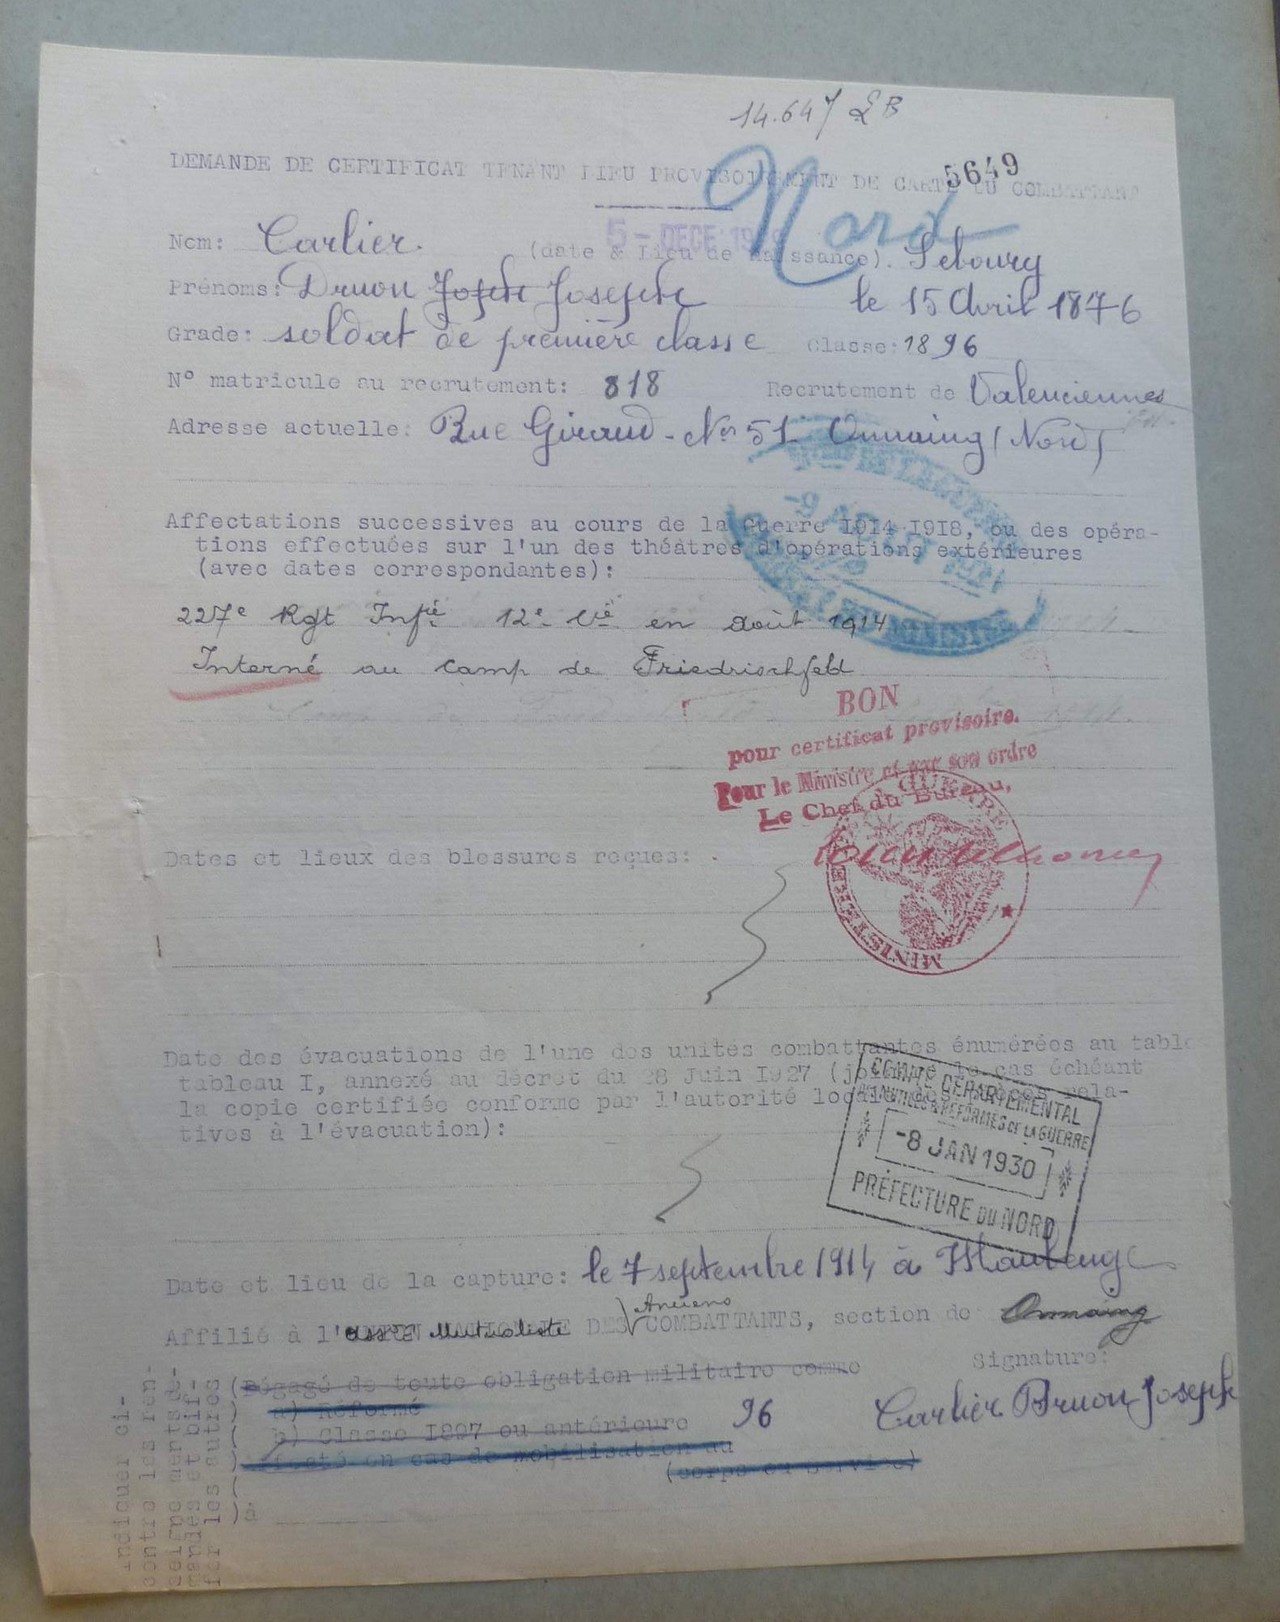 14.647 LB
DEMANDE DE CERTIFICAT TENANT LIEU PROVISOIREMENT DE CARTE DU COMBATTANT
5649
Nord
5 - DECE 19
Nom: Carlier. (date & Lieu de naissance). Sebourg
Prénoms: Druon Joseph le 15 Avril 1876
Grade: soldat de première classe Classe: 1896
N° matricule au recrutement: 818 Recrutement de Valenciennes
Adresse actuelle: Rue Giraud - No 51 Onnaing (Nord)
Affectations successives au cours de la Guerre 1914-1918, ou des opéra-
tions effectuées sur l'un des théâtres d'opérations extérieures
(avec dates correspondantes):
227e Rgt Infie 12e Cie en Août 1914
Interné au camp de Friedrischfeld
BON
pour certificat provisoire.
Pour le Ministre et par son ordre
Le Chef du Bureau,
MINISTERE GUERRE
Dates et lieux des blessures reçues:
Date des évacuations de l'une des unités combattantes énumérées au table
tableau I, annexé au décret du 28 Juin 1927 (joindre le cas échéant
la copie certifiée conforme par l'autorité locale des pièces rela-
tives à l'évacuation):
COMITÉ DÉPARTEMENTAL
DES MUTILÉS & RÉFORMÉS DE LA GUERRE
-8 JAN 1930
PRÉFECTURE DU NORD
Date et lieu de la capture: le 7 septembre 1914 à Maubeuge
Anciens
Affilié à l'UNION NATIONALE DES COMBATTANTS, section de Onnaing
Mutualiste
Signature:
Dégagé de toute obligation militaire comme
a) Réformé
b) Classe 1897 ou antérieure 96
Carlier Druon Joseph
en cas de mobilisation au
(corps ou service)
à
Indiquer ci-
contre les ren-
seignements de-
mandés et bif-
fer les autres